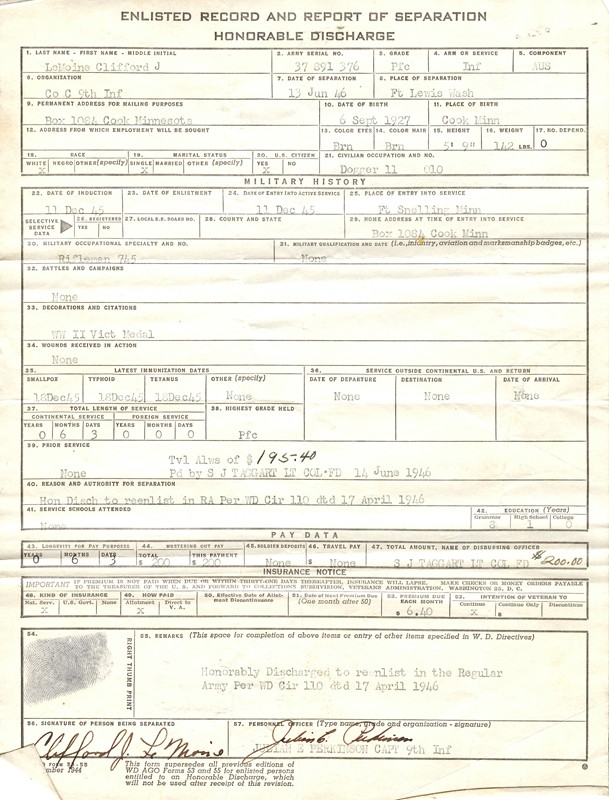 ENLISTED RECORD AND REPORT OF SEPARATION
HONORABLE DISCHARGE
1. LAST NAME - FIRST NAME - MIDDLE INITIAL 2. ARMY SERIAL NO. 3. GRADE 4. ARM OR SERVICE 5. COMPONENT
LeMoine Clifford J 37 891 376 Pfc Inf AUS
6. ORGANIZATION 7. DATE OF SEPARATION 8. PLACE OF SEPARATION
Co C 9th Inf 13 Jun 46 Ft Lewis Wash
9. PERMANENT ADDRESS FOR MAILING PURPOSES 10. DATE OF BIRTH 11. PLACE OF BIRTH
Box 1084 Cook Minnesota 6 Sept 1927 Cook Minn
12. ADDRESS FROM WHICH EMPLOYMENT WILL BE SOUGHT 13. COLOR EYES 14. COLOR HAIR 15. HEIGHT 16. WEIGHT 17. NO. DEPEND.
Brn Brn 5' 9" 142 LBS. 0
18. RACE 19. MARITAL STATUS 20. U.S. CITIZEN 21. CIVILIAN OCCUPATION AND NO.
WHITE NEGRO OTHER (specify) SINGLE MARRIED OTHER (specify) YES NO
X X X Dogger 11 010
MILITARY HISTORY
22. DATE OF INDUCTION 23. DATE OF ENLISTMENT 24. DATE OF ENTRY INTO ACTIVE SERVICE 25. PLACE OF ENTRY INTO SERVICE
11 Dec 45 11 Dec 45 Ft Snelling Minn
SELECTIVE SERVICE DATA 26. REGISTERED YES NO 27. LOCAL S.S. BOARD NO. 28. COUNTY AND STATE 29. HOME ADDRESS AT TIME OF ENTRY INTO SERVICE
Box 1084 Cook Minn
30. MILITARY OCCUPATIONAL SPECIALTY AND NO. 31. MILITARY QUALIFICATION AND DATE (i.e., infantry, aviation and marksmanship badges, etc.)
Rifleman 745 None
32. BATTLES AND CAMPAIGNS
None
33. DECORATIONS AND CITATIONS
WW II Vict Medal
34. WOUNDS RECEIVED IN ACTION
None
35. LATEST IMMUNIZATION DATES 36. SERVICE OUTSIDE CONTINENTAL U.S. AND RETURN
SMALLPOX TYPHOID TETANUS OTHER (specify) DATE OF DEPARTURE DESTINATION DATE OF ARRIVAL
18Dec45 18Dec45 18Dec45 None None None None
37. TOTAL LENGTH OF SERVICE 38. HIGHEST GRADE HELD
CONTINENTAL SERVICE FOREIGN SERVICE
YEARS MONTHS DAYS YEARS MONTHS DAYS
0 6 3 0 0 0 Pfc
39. PRIOR SERVICE
Tvl Alws of $195.40
None Pd by S J TAGGART LT COL FD 14 June 1946
40. REASON AND AUTHORITY FOR SEPARATION
Hon Disch to reenlist in RA Per WD Cir 110 dtd 17 April 1946
41. SERVICE SCHOOLS ATTENDED 42. EDUCATION (Years)
Grammar High School College
None 8 1 0
PAY DATA
43. LONGEVITY FOR PAY PURPOSES 44. MUSTERING OUT PAY 45. SOLDIER DEPOSITS 46. TRAVEL PAY 47. TOTAL AMOUNT, NAME OF DISBURSING OFFICER
YEARS MONTHS DAYS TOTAL THIS PAYMENT
0 6 3 $ 200 $ 200 None $ None S J TAGGART LT COL FD $200.00
INSURANCE NOTICE
IMPORTANT IF PREMIUM IS NOT PAID WHEN DUE OR WITHIN THIRTY-ONE DAYS THEREAFTER, INSURANCE WILL LAPSE. MAKE CHECKS OR MONEY ORDERS PAYABLE
TO THE TREASURER OF THE U.S. AND FORWARD TO COLLECTIONS SUBDIVISION, VETERANS ADMINISTRATION, WASHINGTON 25, D. C.
48. KIND OF INSURANCE 49. HOW PAID 50. Effective Date of Allotment Discontinuance 51. Date of Next Premium Due (One month after 50) 52. PREMIUM DUE EACH MONTH 53. INTENTION OF VETERAN TO
Nat. Serv. U.S. Govt. None Allotment Direct to V. A. Continue Continue Only Discontinue
X X $ 6.40 X
54. RIGHT THUMB PRINT
55. REMARKS (This space for completion of above items or entry of other items specified in W. D. Directives)
Honorably Discharged to reenlist in the Regular
Army Per WD Cir 110 dtd 17 April 1946
56. SIGNATURE OF PERSON BEING SEPARATED 57. PERSONNEL OFFICER (Type name, grade and organization - signature)
Clifford J. Le Moine
JULIAN E PERKINSON CAPT 9th Inf
FORM 53-55
1944
This form supersedes all previous editions of
WD AGO Forms 53 and 55 for enlisted persons
entitled to an Honorable Discharge, which
will not be used after receipt of this revision.